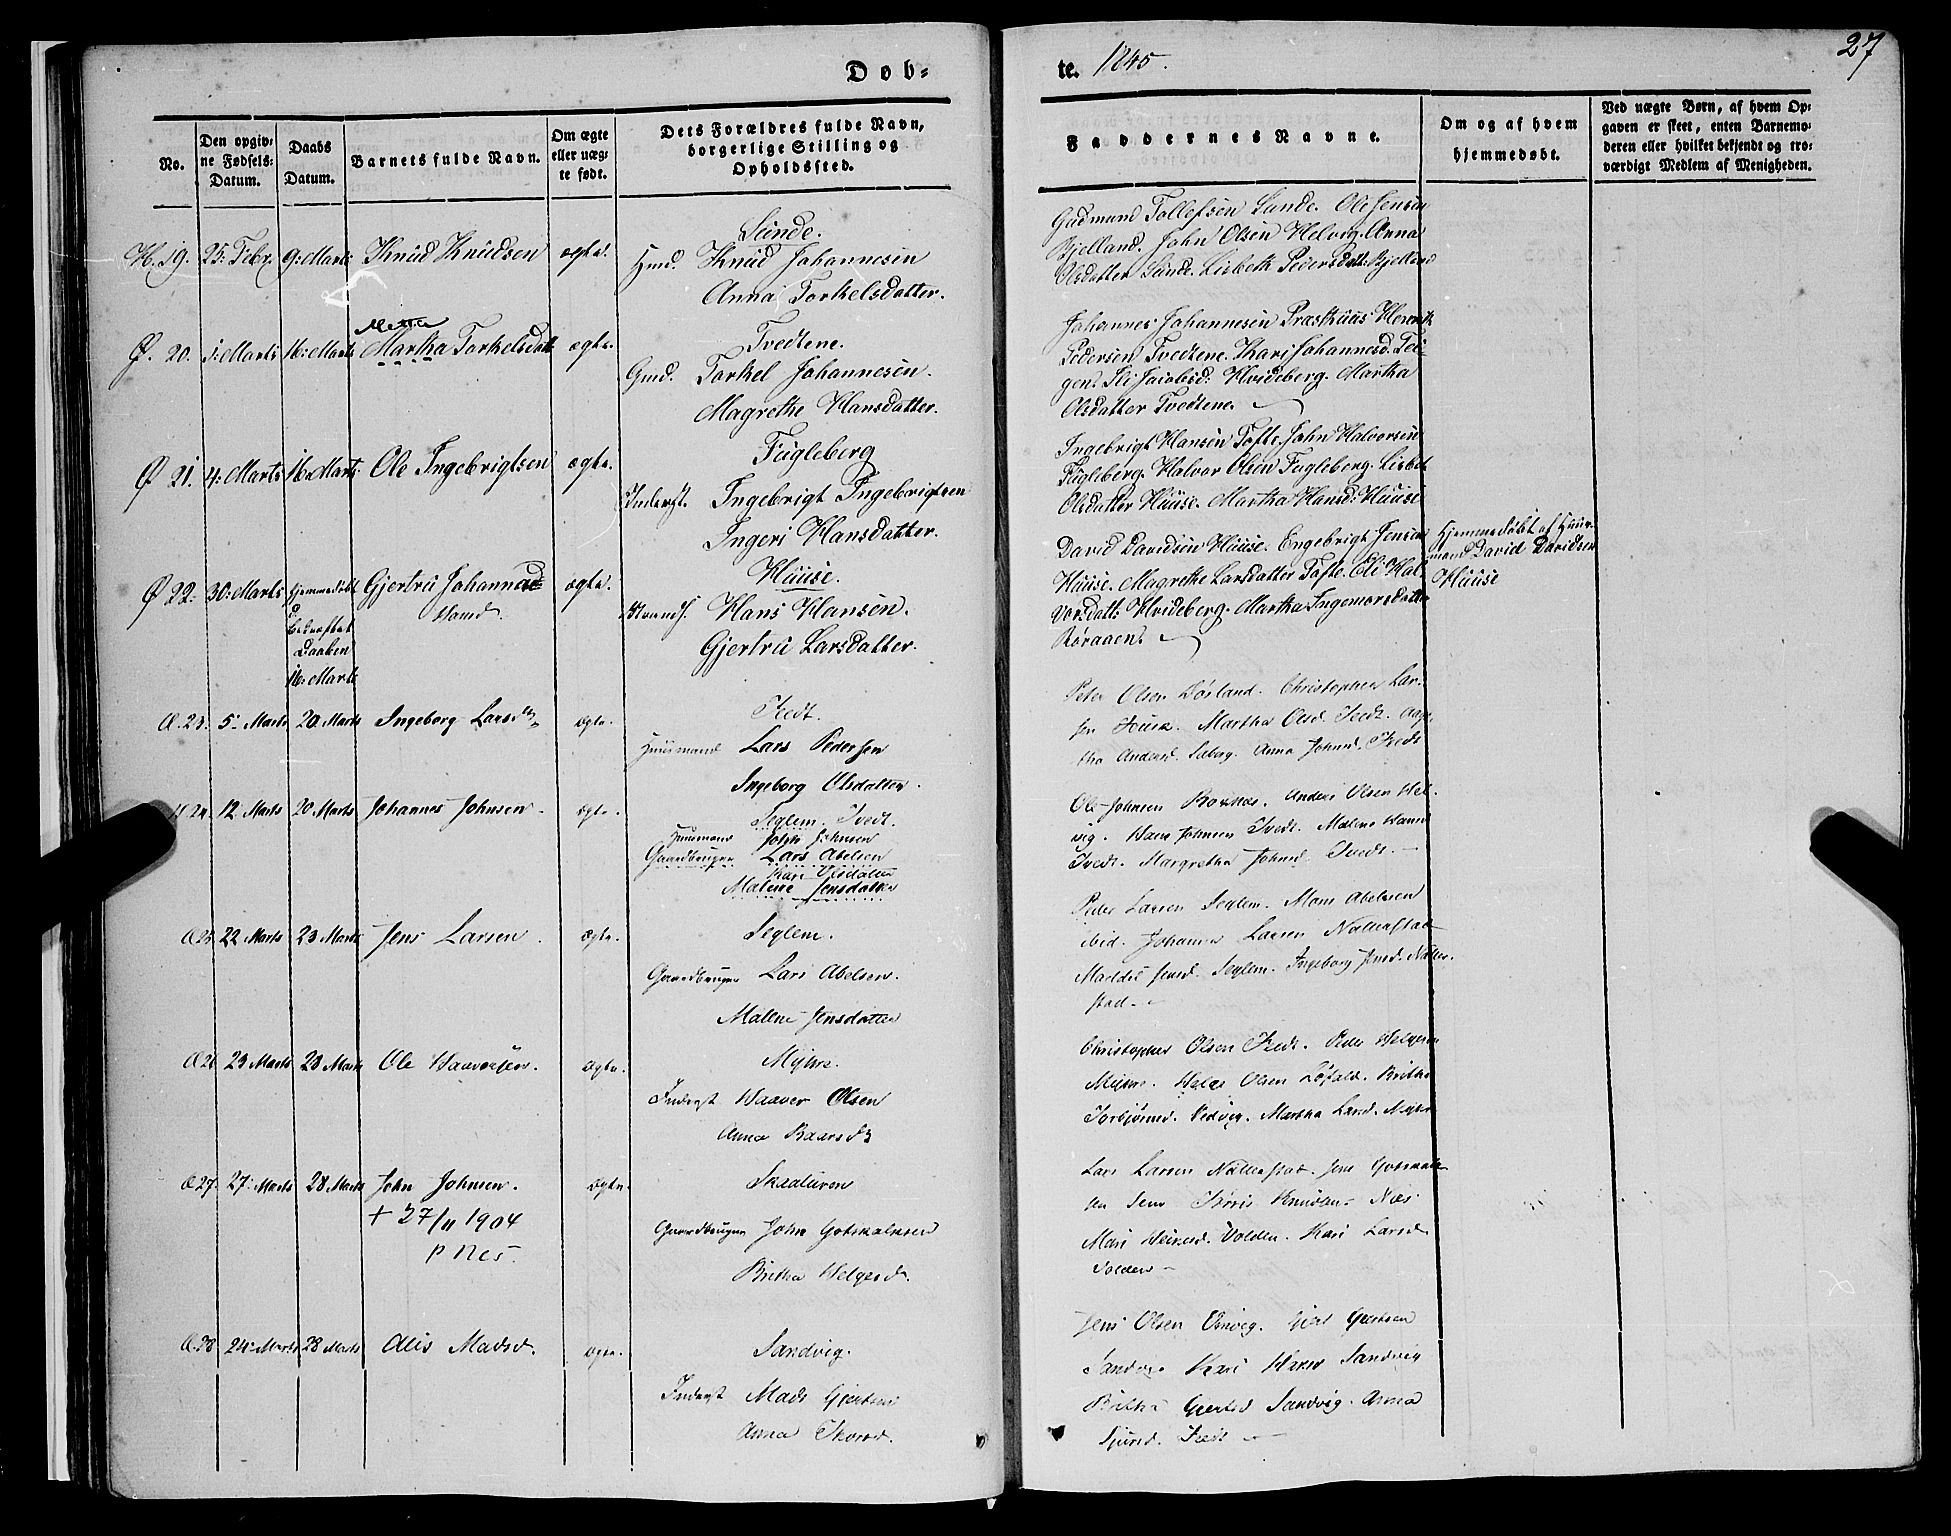 Døb-
te. 1845.
27
No.
Den opgiv-
ne Fødsels-
Datum.
Daabs
Datum.
Barnets fulde Navn.
Om ægte
eller uæg-
te født.
Dets Forældres fulde Navn,
borgerlige Stilling og
Opholdssted.
Faddernes Navne.
Om og af hvem
hjemmedøbt.
Ved uægte Børn, af hvem Op-
gaven er skeet, enten Barnemo-
deren eller hvilket bekjendt og tro-
værdigt Medlem af Menigheden.
19. 25: Febr. 9: Marts Knud Knudsen ægte.
Sunde.
Hmd. Knud Johannesen
Anna Torkelsdatter.
Gudmund Tollefsen Sunde. Ole Jensen
Bjelland. John Olsen Helvig. Anna
Olsdatter Sunde. Lisbeth Pedersdatt: Bjelland
Metta
Ø. 20. 1: Marts 16: Marts Martha Torkelsdatt ægte.
Tvedtene.
Gmd. Torkel Johannesen.
Magrethe Hansdatter.
Johannes Johannesen Præsthuus Henrik
Pedersen Tvedtene. Kari Johannesd. Tei-
gen. Eli Jacobsd: Hvideberg. Martha
Olsdatter Tvedtene.
Ø 21. 4: Marts 16: Marts: Ole Ingebrigtsen ægte.
Fugleberg
Inderst. Ingebrigt Ingebrigtsen
Ingeri Hansdatter.
Ingebrigt Hansen Tofte. John Halvorsen
Fugleberg. Halvor Olsen Fugleberg. Lisbet
Olsdatter Huuse. Martha Hansd: Huuse
Ø 22. 30: Marts hjemmedøbt Gjertru Johanna ægte.
Hansd.
bekræftet
Daaben
16: Marts
Huuse.
Hans Hansen.
Gjertru Larsdatter.
David Davidsen Huuse. Engebrigt Jensen
Huuse. Magrethe Larsdatter Tofte. Eli Hal-
vorsdatt: Hvideberg. Martha Ingemorsdatter
Røraaen.
Hjemmedøbt af Huus-
mand David Davidsen
Huuse
Æ. 23. 5: Marts 20 Marts Ingeborg Larsdtr ægte.
Tvedt.
Huusmand Lars Pedersen
Ingeborg Olsdatter.
Peter Olsen Dosland. Christopher Lar-
sen Tvedt. Martha Olsd. Tvedt. Aga-
tha Andersd. Søberg. Anna Johnsd. Tvedt
24. 12. Marts 20 Marts Johannes Johnsen. ægte.
Seglem. Tvedt.
Huusmand John Johnsen
Gaardbruger Lars Abelsen
Kari Olsdatter
Malene Jensdatter
Ole Johnsen Boxnæs. Anders Olsen Hel-
vig. Hans Johnsen Tvedt. Malene Hansd
Tvedt. Margretha Johnsd. Tvedt.
Æ 25 22 Marts 23 Marts Jens Larsen. ægte.
Seglem.
Gaardbruger Lars Abelsen.
Malene Jensdatter
Peder Larsen Seglem. Mons Abelsen
ibid. Johannes Larsen Nallerstad
Jensd. Seglem. Ingeborg Jensd. Naller-
stad.
Æ 26 23 Marts 28 Marts Ole Haaversen. ægte.
Myhre.
Inderst Haaver Olsen
Anna Baarsdtr
Christopher Olsen Tvedt. Peder Helgesen
Myhre. Helge Olsen Lofald. Britha
Torbjørnsd. Vedvig. Martha Larsd. Myhre
Æ 27. 27: Marts 28 Marts John Johnsen. ægte.
+ 27/11 1904
p Nes.
Skaaluren
Gaardbruger John Gotskalksen
Britha Helgesd.
Lars Larsen Nallerstad. Jens Gotskalk-
sen Sem Knudsen Næs
Mari Volden. Kari Larsd
Solden
Æ. 28 24: Marts 28 Marts Alis Madsd. ægte.
Sandvig.
Inderst Mads Gjertsen
Anna Thorsd.
Jens Olsen Omvig. Gjert Gjertsen
Sandvig Kari Sandvig
Britha Gjertsd Sandvig. Anna
Sjursd. Tvedt